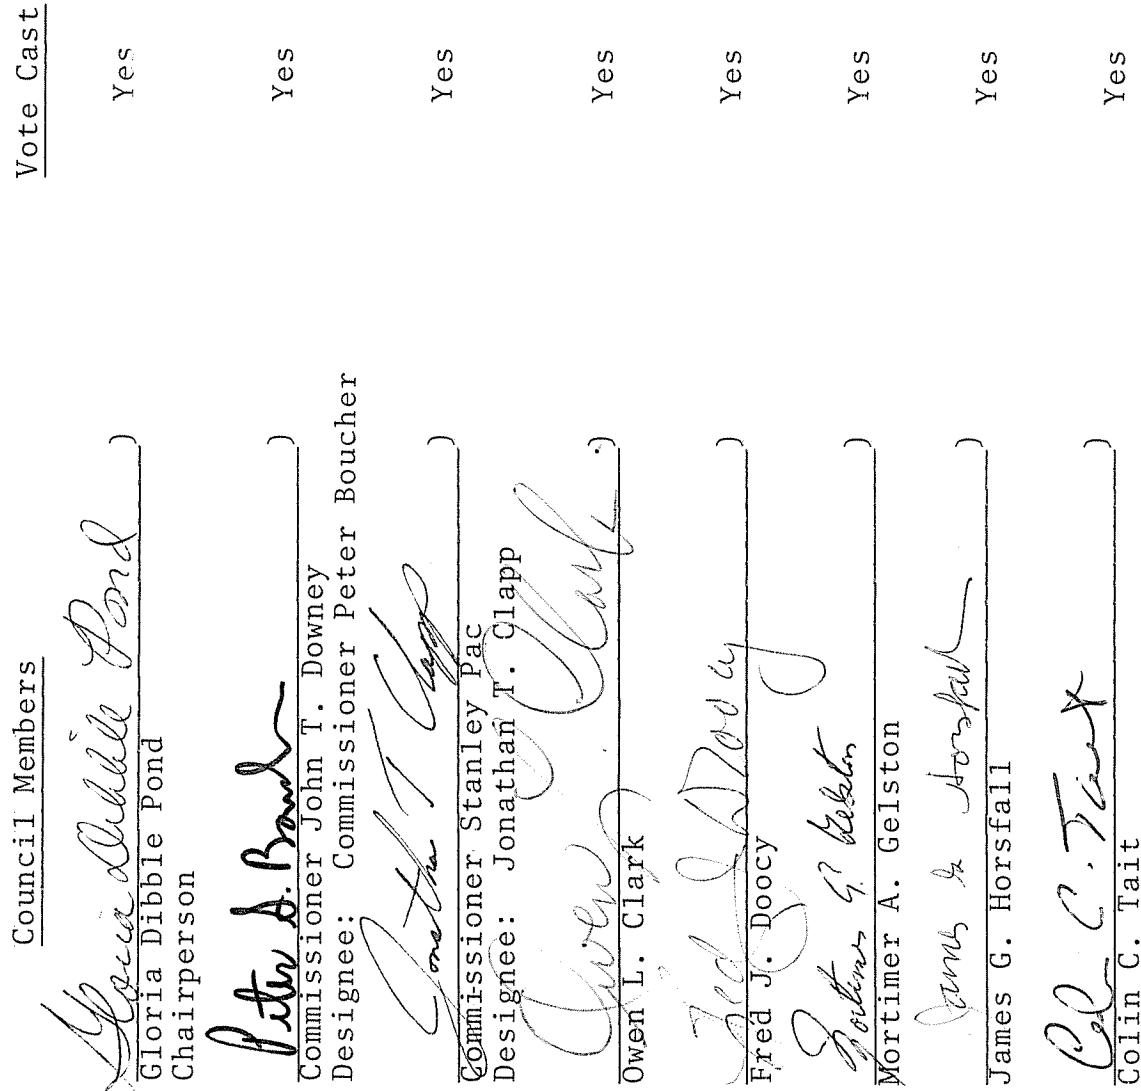 Council Members Vote Cast
Gloria Dibble Pond ) Yes
Gloria Dibble Pond
Chairperson
Peter G. Boucher ) Yes
Commissioner John T. Downey
Designee: Commissioner Peter Boucher
Jonathan T Clapp ) Yes
Commissioner Stanley Pac
Designee: Jonathan T. Clapp
Owen L Clark ) Yes
Owen L. Clark
Fred J Doocy ) Yes
Fred J. Doocy
Mortimer A Gelston ) Yes
Mortimer A. Gelston
James G Horsfall ) Yes
James G. Horsfall
Colin C. Tait ) Yes
Colin C. Tait